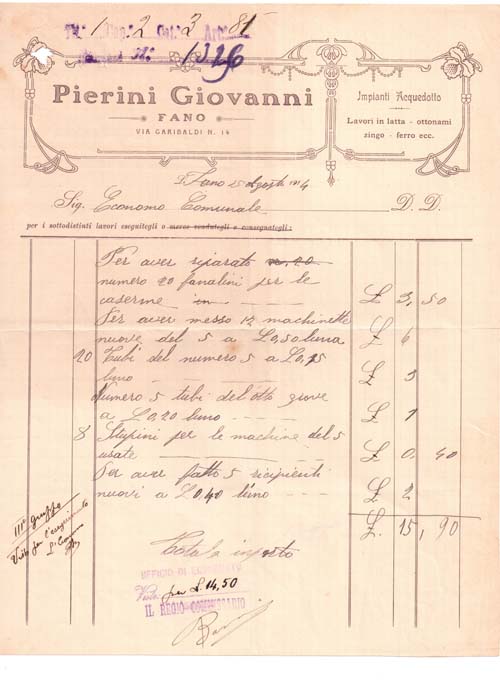 Tit. 1 Cap. 2 Cat. 3 Art. 81
1326
Pierini Giovanni
FANO
VIA GARIBALDI N. 14
Impianti Acquedotto
Lavori in latta - ottonami
zingo - ferro ecc.
Fano 25 Agosto 1914
Sig. Economo Comunale D. D.
per i sottodistinti lavori eseguitegli o merce vendutegli e consegnategli:
Per aver riparato n. 20
numero 20 fanalini per le
caserme in £ 3,50
Per aver messo 12 machinette
nuove del 5 a L 0,50 luna £ 6
20 Tubi del numero 5 a L 0,15
luno £ 3
Numero 5 tubi del otto giove
a L 0,20 luno £ 1
8 Stupini per le machine del 5
usate £ 0,40
Per aver fatto 5 recipienti
nuovi a L 0,40 l'uno £ 2
£ 15,90
Totala inporto
III° gruppo
Visto per l'eseguimento
L'Economo
UFFICIO DI
Visto per L. 14,50
IL REGIO COMMISSARIO